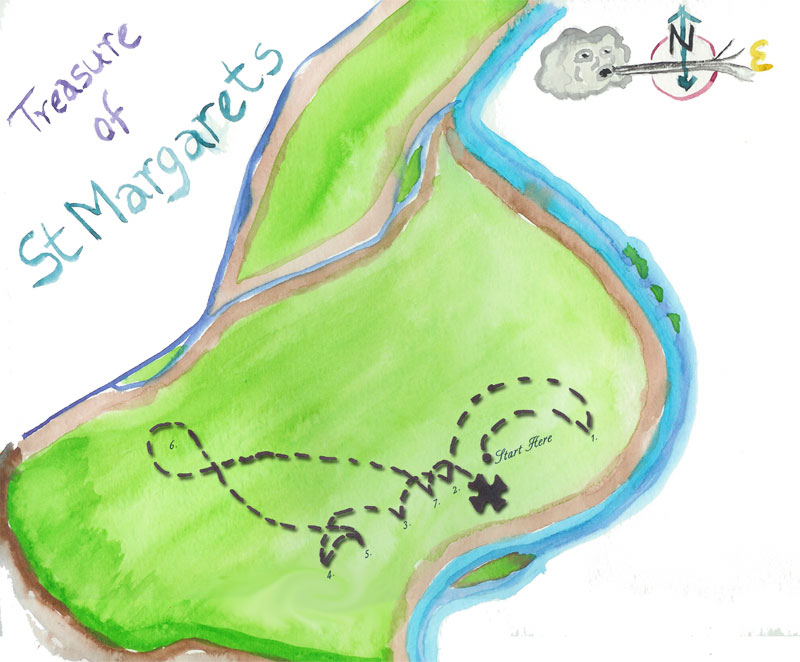 Treasure
of
St Margarets
N
E
Start Here
1.
2.
7.
3.
6.
5.
4.